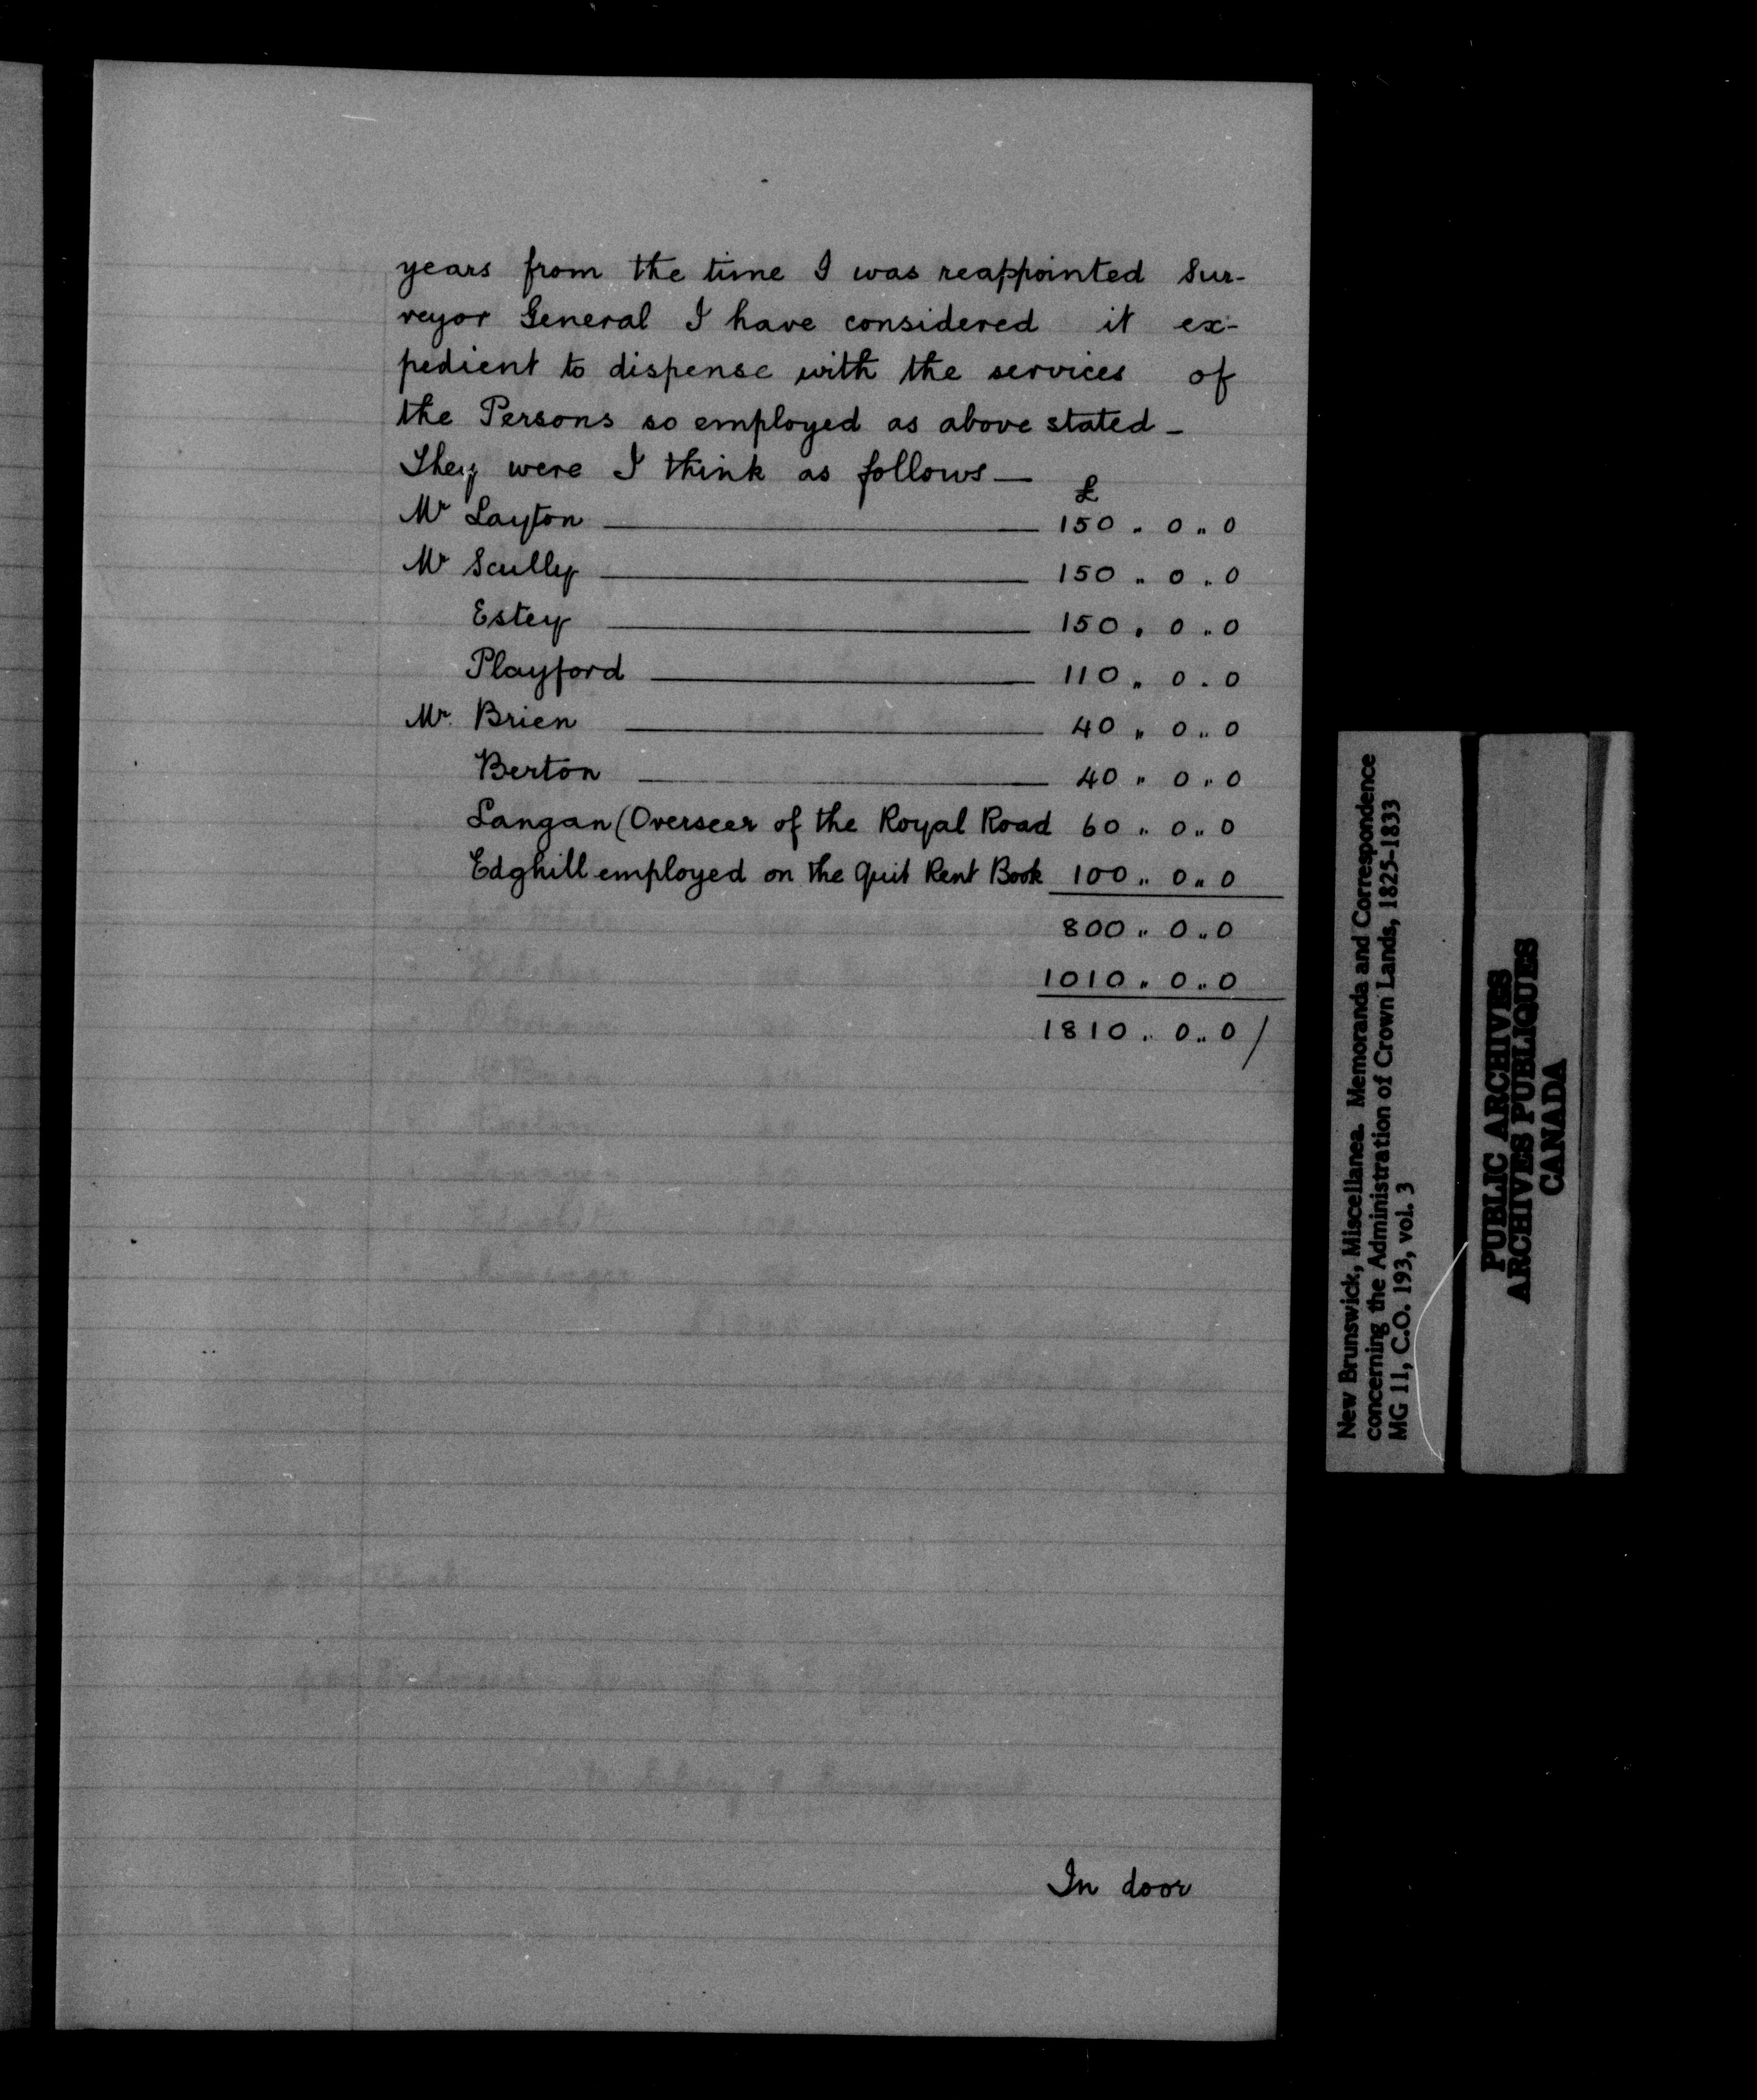 years from the time I was reappointed Sur-
veyor General I have considered it ex-
pedient to dispense with the services of
the Persons so employed as above stated –
They were I think as follows —
£
Mr Layton ——— 150 „ 0 „ 0
Mr Scully ——— 150 „ 0 „ 0
Estey ——— 150 „ 0 „ 0
Playford ——— 110 „ 0 „ 0
Mr. Brien ——— 40 „ 0 „ 0
Berton ——— 40 „ 0 „ 0
Langan (Overseer of the Royal Road 60 „ 0 „ 0
Edghill employed on the Quit Rent Book 100 „ 0 „ 0
800 „ 0 „ 0
1010 „ 0 „ 0
1810 „ 0 „ 0 /
In door
New Brunswick, Miscellanea. Memoranda and Correspondence
concerning the Administration of Crown Lands, 1825-1833
MG 11, C.O. 193, vol. 3
PUBLIC ARCHIVES
ARCHIVES PUBLIQUES
CANADA